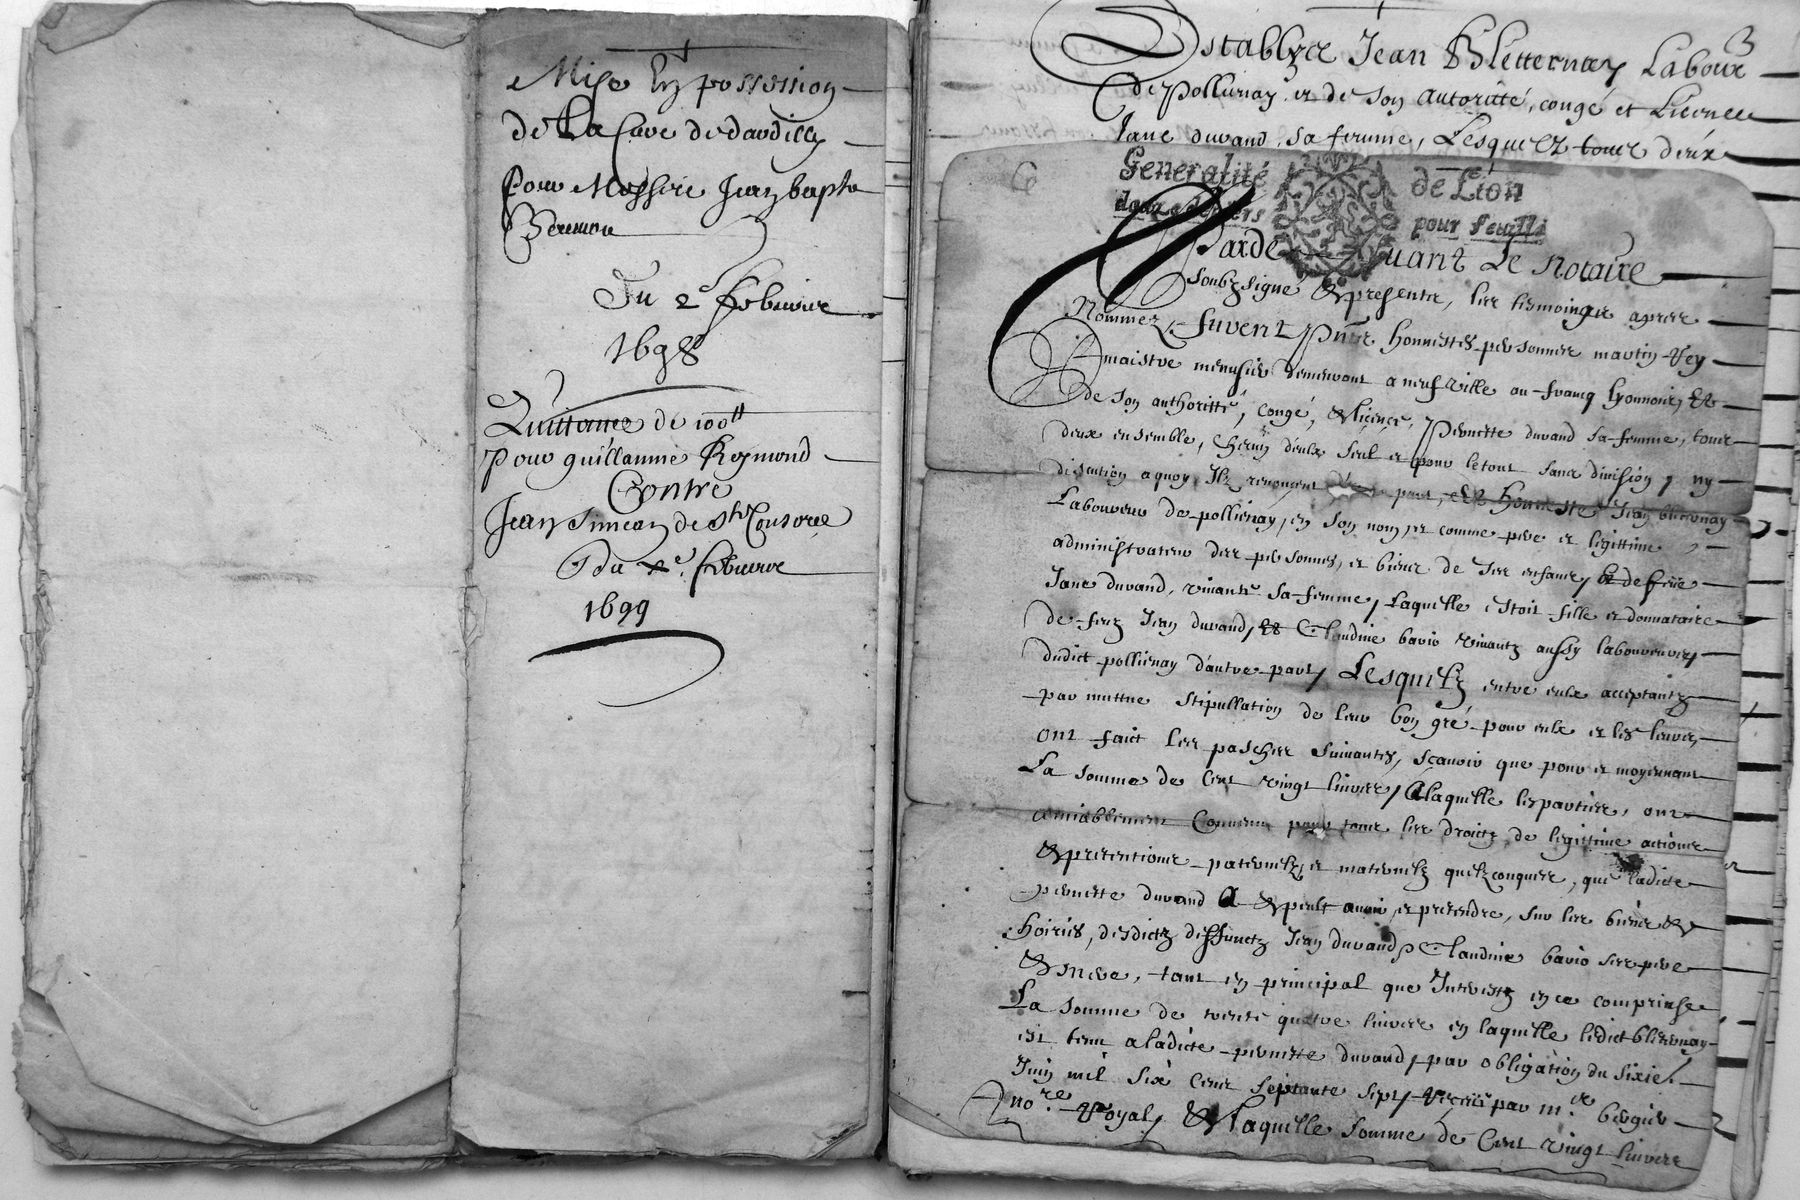 Mise En possession
de La Cure de dardilly
Pour Messire Jean bapte
Du 2e febvrier
1698
Quittance de 100tt
Pour guillaume Reymond
Contre
Jean Simean de Ste Consorce
Du xe febvrier
1699
3
Establye Jean Bletternay Labour
de Pollienay et de son authorité, congé et Licence
Jane durand sa femme, Lesquelz tous deux
Generalité de Lion
douze deniers pour feuille
Pardevant Le Notaire
soubzsigné & present, les tesmoings apres
Nommez, furent pnts honnestes personnes martin Rey
maistre menusier demeurant a neufville au francq lyonnois, Et
de son authoritté, congé, & licence, Pernette durand sa femme, tous
deux ensemble, chascun d'eulx seul et pour le tout sans division, ny
discution a quoy Ilz renoncent part, et honneste Jean bleternay
Laboureur de pollienay, en son nom, et comme pere et legittime
administrateur des personnes, et biens de ses enfans, & de feüe
Jane durand, vivante sa femme, Laquelle estoit fille et donnataire
de feuz Jean durand, Et Claudine bario vivantz aussy laboureurs
dudict pollienay d'autre part, Lesquelz entre eulx acceptantz
par muttue stipullation de leur bon gré pour eulx et les leurs,
ont faict les pasches suivantes, sçavoir que pour et moyennant
La somme de Cent vingt livres, A laquelle les parties, ont
amiablement Convenu pour tous les droictz de legittime actions
& pretentions paternelz et maternelz quelzconques, que ladicte
pernette durand A & peult avoir, et pretendre, sur les biens &
hoiries, desdictz deffunctz Jean durand, & Claudine bario ses pere
& mere, tant en principal que Interestz en ce comprinse
La somme de trente quatre livres en laquelle ledict bleternay
est tenu a ladicte pernette durand, par obligation du sixie.
Juin mil six cent septante sept, Receüe par me bergier
nore Royal, & laquelle somme de Cent vingt livres